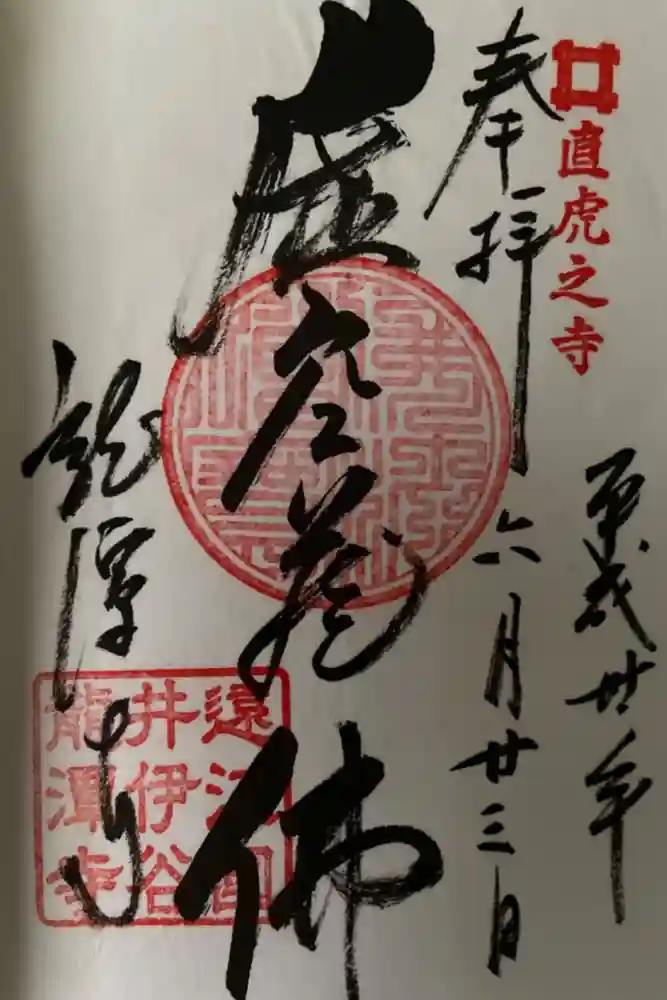 直虎之寺
奉拝
平成卅年
六月廿三日
虚空蔵佛
龍潭寺
遠江國
井伊谷
龍潭寺